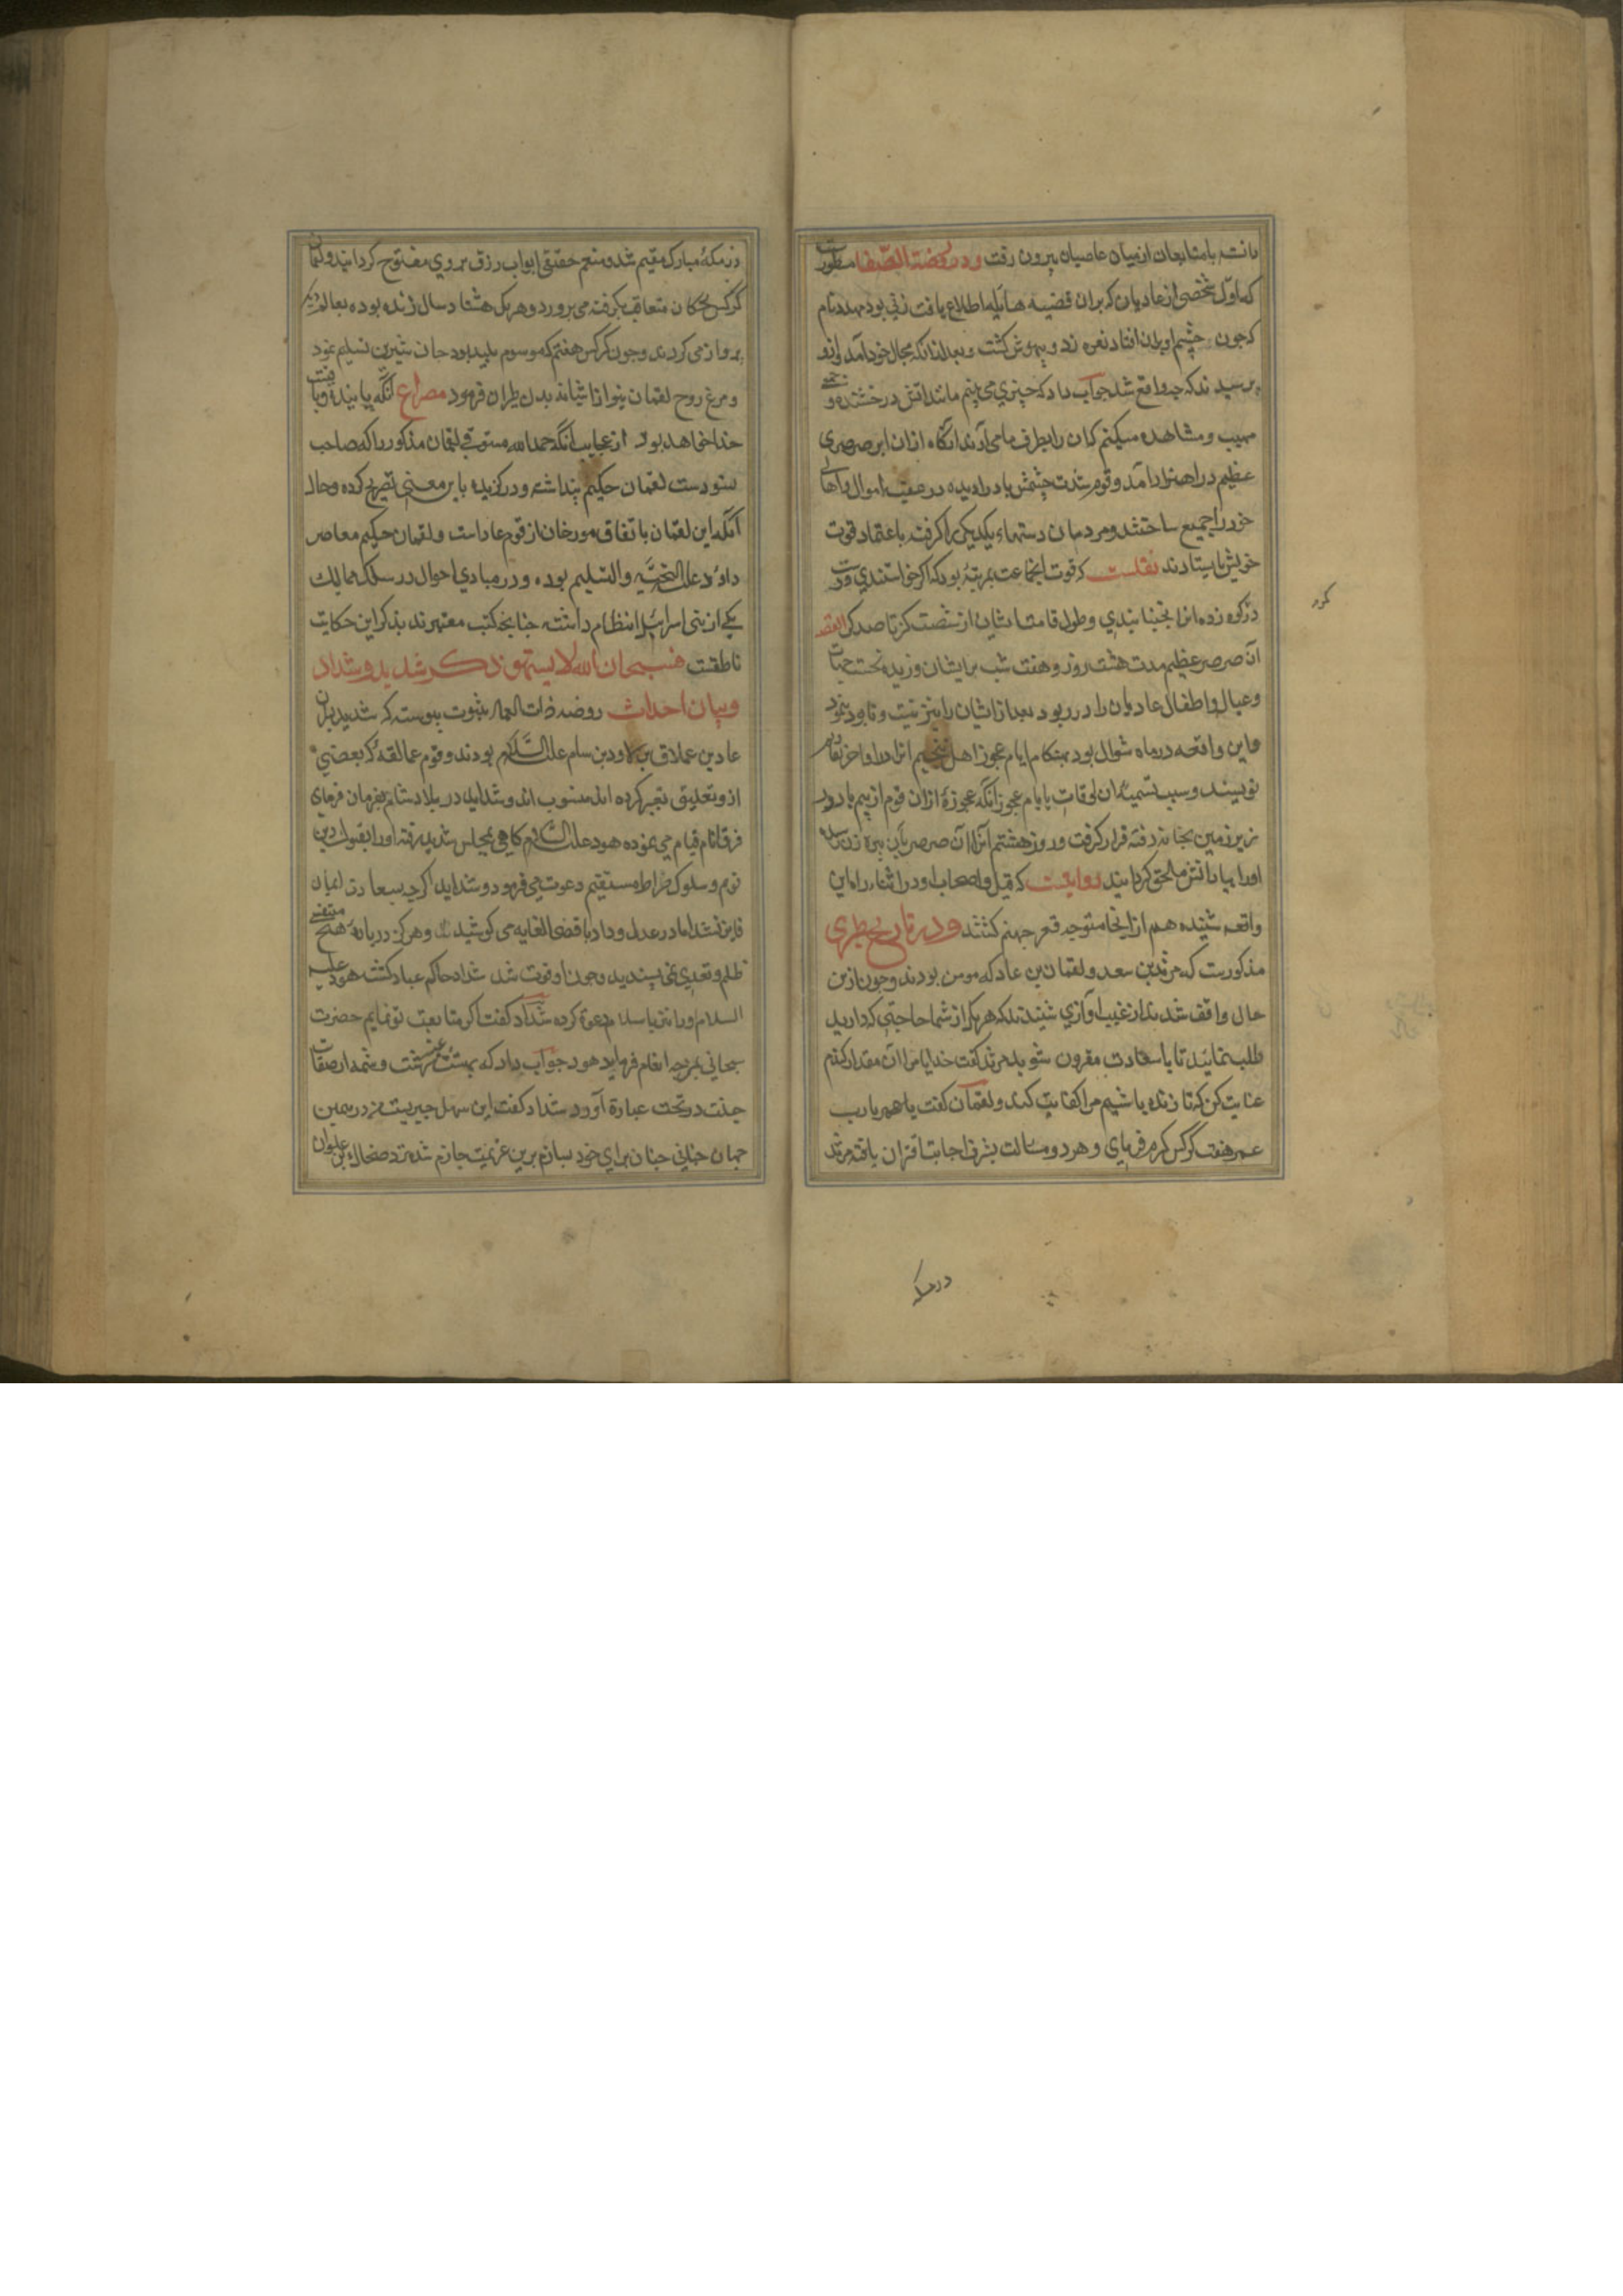 دانسته با متابعان از میان عاصیان بیرون رفت ودر روضة الصفا مسطورست
که اول شخصی از عادیان که بران قضیه هایله اطلاع یافت زنی بود مهدد نام
که چون چشم او بران افتاد نعره زد و بیهوش گشت و بعد ازانکه بحال خود آمد ازو
پرسیدند که چه واقع شد جواب داد که چیزی می بینم مانند آتش درخشنده و
مهیب و مشاهده میکنم که آن را بطرف ما می آرند آنگاه ازان ابر صرصری
عظیم در اهتزاز آمد و قوم شدت باد را دیده در عقب اموال و اهالی
خود را جمیع ساختند و مردمان دستهاء یکدیگر را گرفته باعتماد قوت
خویش بایستادند نقلست که قوت انجماعت بمرتبه بود که اگر خواستندی
در کوه زده انرا بجنبانیدی و طول قامتشان از شصت گز تا صد گز القصه
آن صرصر عظیم مدت هشت روز و هفت شب برایشان وزیده نخست
و عیال و اطفال عادیان را در ربود بعد ازان ایشان را نیز نیست و نابود نمود
واین واقعه در ماه شوال بود بهنگام ایام عجوز اهل تنجیم انرا در اواخر تقاویم
نویسند و سبب تسمیه ان اوقات بایام عجوز آنکه عجوزه ازان قوم از بیم باد در
زیر زمین بخانه رفته قرار گرفت و روز هشتم آن صرصر بآن پیره زن رسیده
اورا بیاران ملحق گردانید روایتست که قیل واصحاب او در اثناء راه این
واقعه شنیده هم از انجا متوجه قعر جهنم گشتند ودر تاریخ طبری
مذکورست که مرثد بن سعد و لقمان بن عاد که مومن بودند و چون ازین
حال واقف شدند از غیب آوازی شنیدند که هر یک از شما حاجتی که دارید
طلب نمایید تا باسعادت مقرون شوید مرثد گفت خدایا مرا آن مقدار گندم
عنایت کن که تا زنده باشم مرا کفایت کند و لقمان گفت یارب
عمر هفت کرکس کرم فرمای و هر دو مسالت بشرف اجابت اقتران یافته مرثد
کرد
در مکه
در مکه مبارک مقیم شد و منعم حقیقی ابواب رزق بروی مفتوح گردانید و لقمان
کرکس بچگان متعاقب بگرفته می پرورد و هر یک هشتاد سال زنده بوده بعالم دیگر
پرواز می کردند و چون کرکس هفتم که موسوم بلبد بود جان شیرین تسلیم نمود
و مرغ روح لقمان نیز از اشیانه بدن طیران فرمود مصراع آنکه پاینده و باقیست
خدا خواهد بود از عجایب آنکه حمدالله مستوفی لقمان مذکور را که صاحب
نسورست لقمان حکیم پنداشته و در گزیده باین معنی تصریح کرده و حال
آنکه این لقمان باتفاق مورخان از قوم عاد است و لقمان حکیم معاصر
داود علیه التحیة والتسلیم بوده و در مبادی احوال در سلک ممالیک
یکی از بنی اسراییل انتظام داشته چنانچه کتب معتبره بذکر این حکایت
ناطقست فسبحان الله لا یسهو ذکر شدید و شداد
و بیان احداث روضه ذات العماد بثبوت پیوسته که شدید بن
عاد بن عملاق بن لاود بن سام علیه السلام بودند و قوم عمالقه که بعضی
ازو تعلیق تعبیر کرده اند منسوب اند و شدید در بلاد شام بفرمان فرمای
فرق انام قیام می نمود هود علیه السلام گاهی بمجلس شدید رفته اورا بقبول دین
قویم و سلوک صراط مستقیم دعوت می فرمود و شدید اگرچه بسعادت ایمان
فایز نشد اما در عدل و داد باقصی الغایه می کوشید و هرگز در باره هیچ متنفسی
ظلم و تعدی نمی پسندید و چون او فوت شد شداد حاکم عباد گشت هود علیه
السلام ورا نیز باسلام دعوة کرده شداد گفت اگر متابعت تو نمایم حضرت
سبحانی بمن چه انعام فرماید هود جواب داد که بهشت عنبر سرشت و شمه از صفات
جنت در تحت عبارة آورد شداد گفت این سهل چیزیست من در همین
جهان جنانی چنان برای خود سازم برین عزیمت جازم شده نزد ضحاک بن علوان